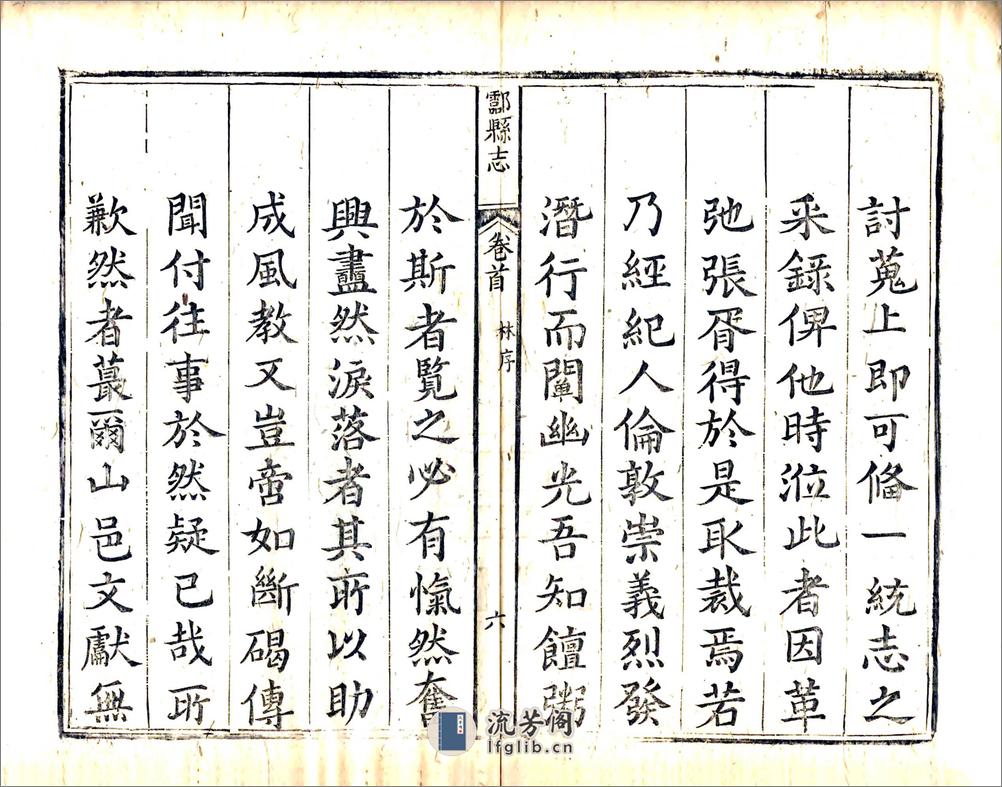 討蒐上即可備一統志之
采錄俾他時涖此者因革
弛張胥得於是取裁焉若
乃經紀人倫敦崇義烈發
潛行而闡幽光吾知饘粥
酃縣志
卷首
林序
六
於斯者覽之必有愾然奮
興衋然淚落者其所以助
成風教又豈啻如斷碣傳
聞付往事於然疑已哉所
歉然者蕞爾山邑文獻無
流芳阁
lfglib.cn